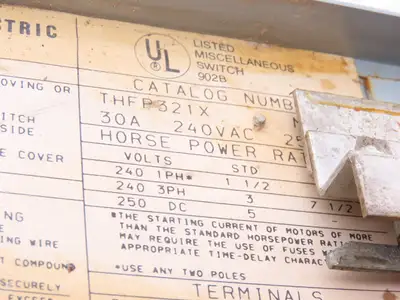 CTRIC
UL
®
LISTED
MISCELLANEOUS
SWITCH
902B
CATALOG NUMB
OVING OR
THFP321X
ITCH
30A 240VAC
SIDE
HORSE POWER RAT
E COVER
VOLTS STD
240 1PH* 1 1/2
240 3PH 3 7 1/2
250 DC 5
*THE STARTING CURRENT OF MOTORS OF MORE
THAN THE STANDARD HORSEPOWER RATI
NG
MAY REQUIRE THE USE OF FUSES W
ING WIRE
APPROPRIATE TIME-DELAY CHARAC
T COMPOUND
*USE ANY TWO POLES
SECURELY
TERMINALS
EXCESS